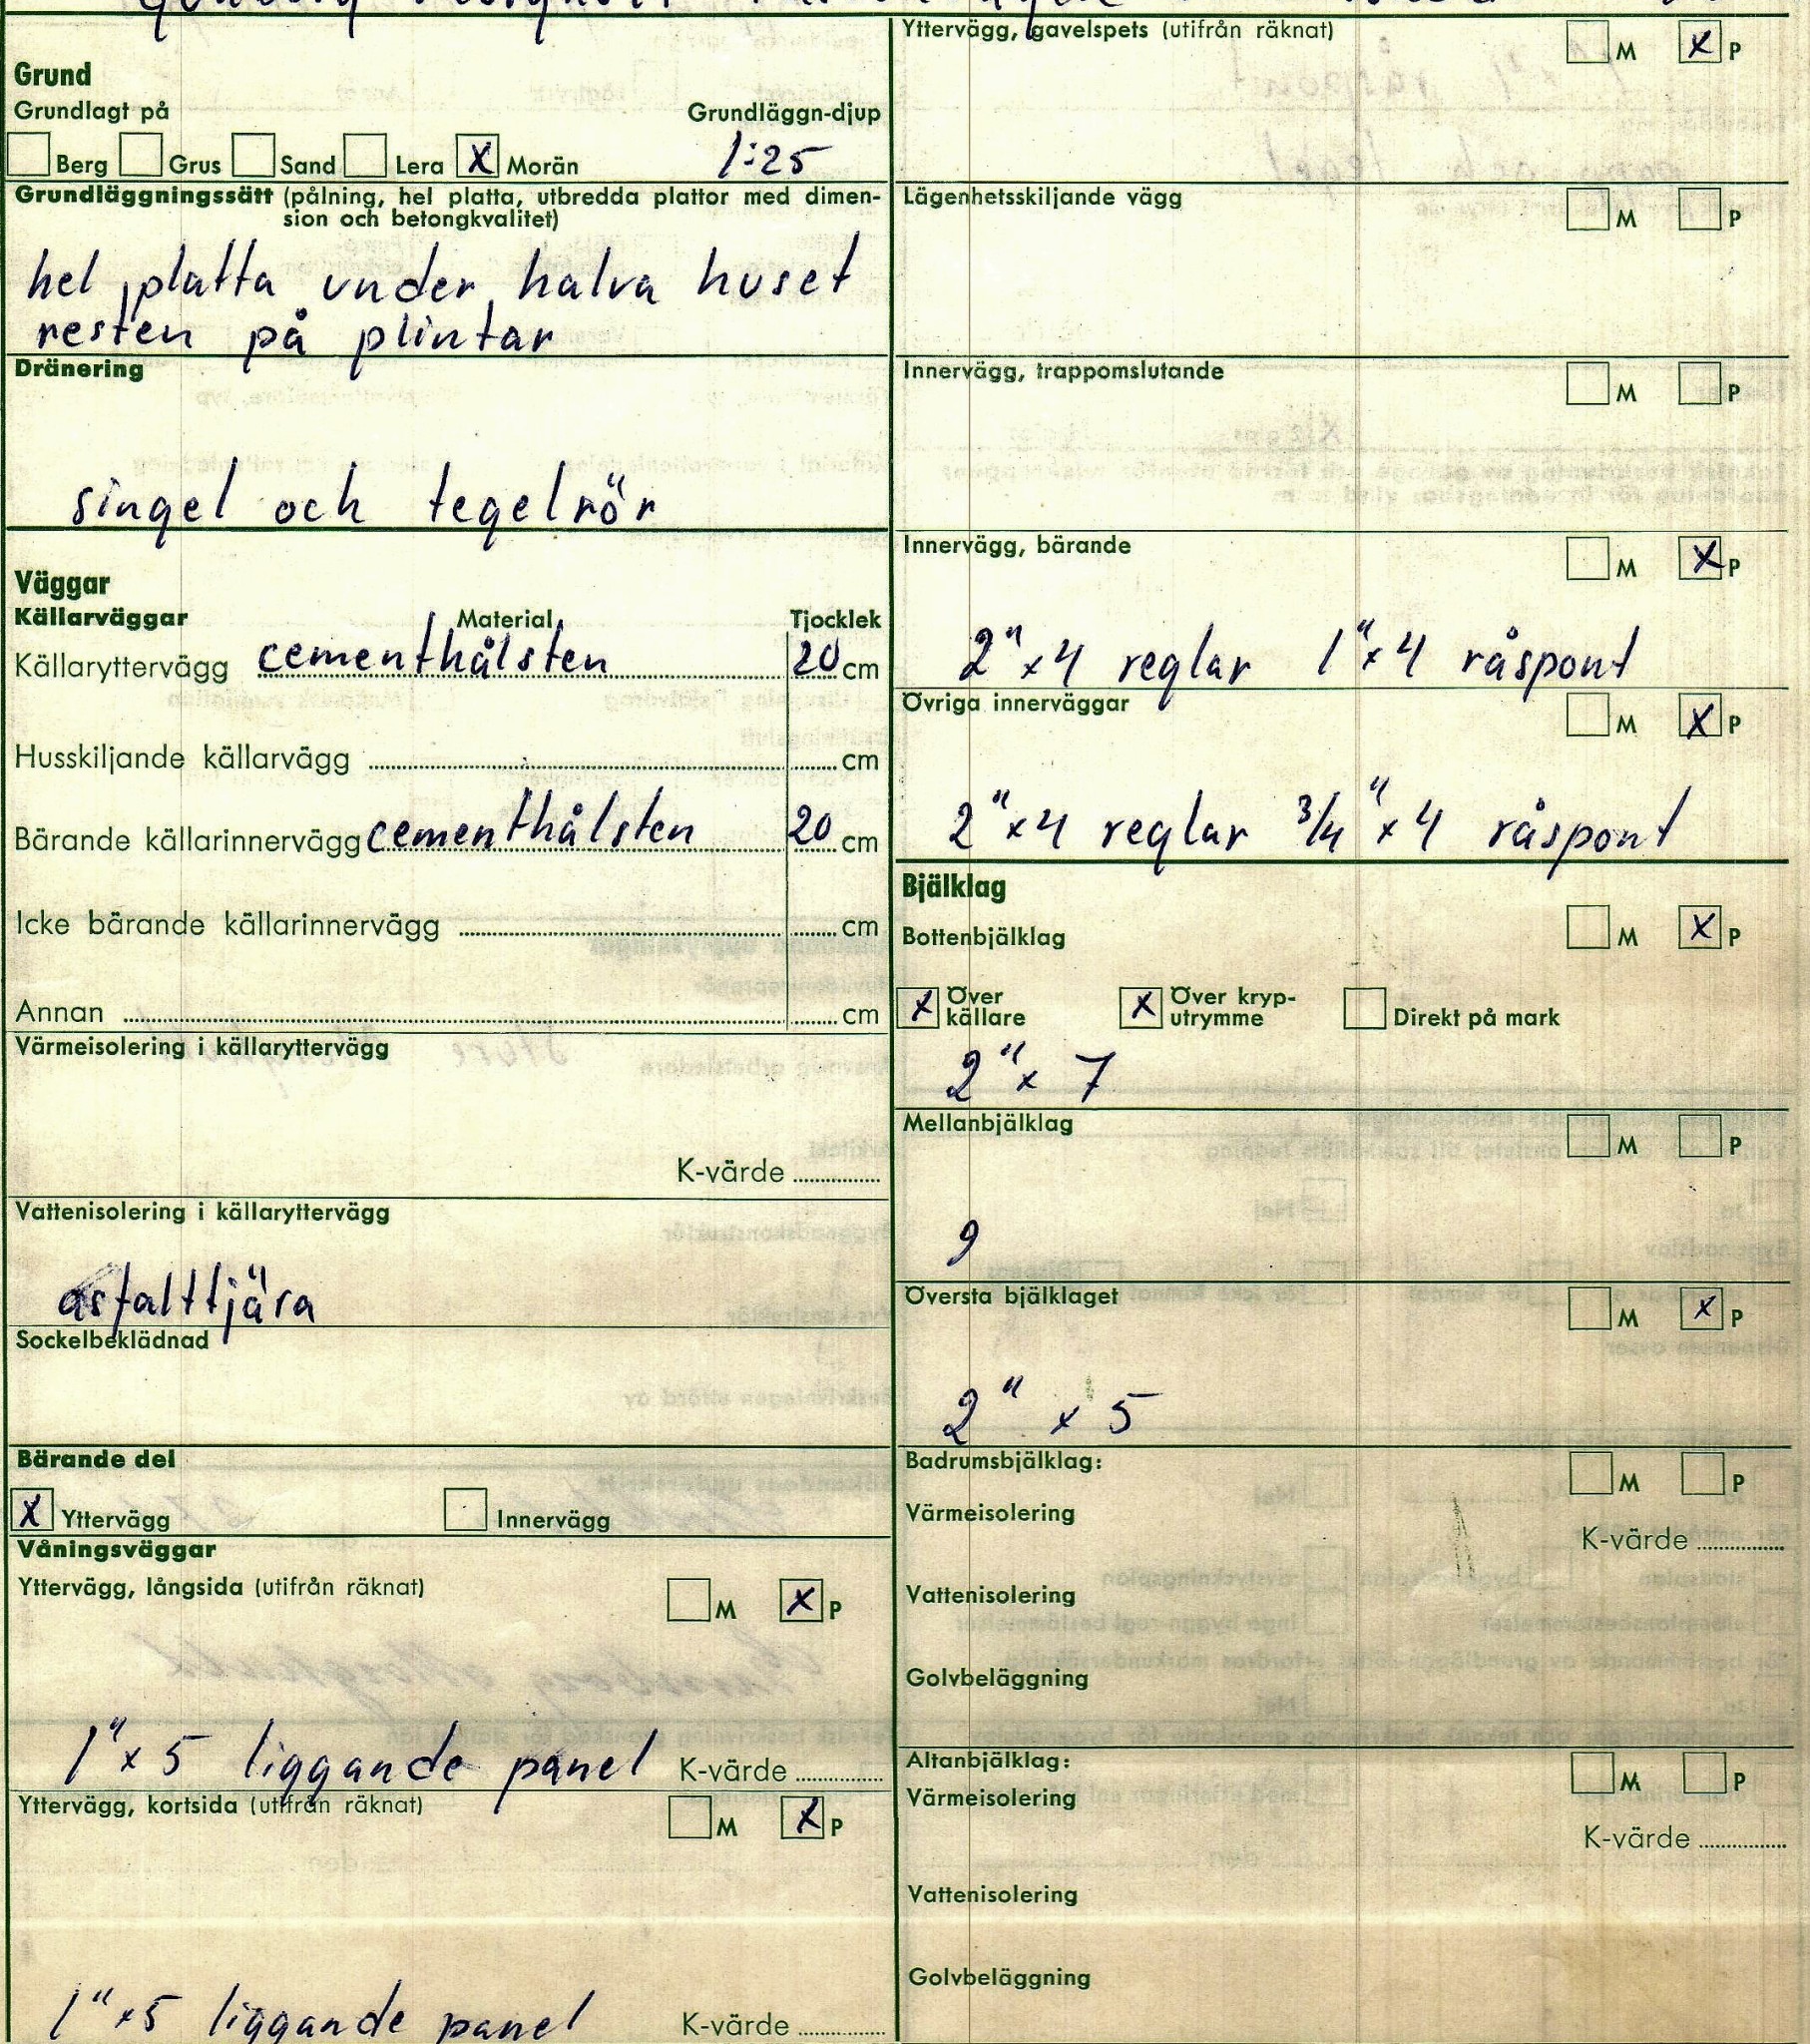 Grund
Grundlagt på Grundläggn-djup
Berg Grus Sand Lera X Morän 1:25
Grundläggningssätt (pålning, hel platta, utbredda plattor med dimen-
sion och betongkvalitet)
hel platta under halva huset
resten på plintar
Dränering
singel och tegelrör
Väggar
Källarväggar Material Tjocklek
Källaryttervägg cementhålsten 20 cm
Husskiljande källarvägg cm
Bärande källarinnervägg cementhålsten 20 cm
Icke bärande källarinnervägg cm
Annan cm
Värmeisolering i källaryttervägg
K-värde
Vattenisolering i källaryttervägg
asfalttjära
Sockelbeklädnad
Bärande del
X Yttervägg Innervägg
Våningsväggar
Yttervägg, långsida (utifrån räknat) M X P
1" x 5 liggande panel K-värde
Yttervägg, kortsida (utifrån räknat) M X P
1" x 5 liggande panel K-värde
Yttervägg, gavelspets (utifrån räknat) M X P
Lägenhetsskiljande vägg M P
Innervägg, trappomslutande M P
Innervägg, bärande M X P
2" x 4 reglar 1" x 4 råspont
Övriga innerväggar M X P
2" x 4 reglar 3/4" x 4 råspont
Bjälklag
Bottenbjälklag M X P
X Över källare X Över kryp-utrymme Direkt på mark
2" x 7
Mellanbjälklag M P
9
Översta bjälklaget M X P
2" x 5
Badrumsbjälklag: M P
Värmeisolering
K-värde
Vattenisolering
Golvbeläggning
Altanbjälklag: M P
Värmeisolering
K-värde
Vattenisolering
Golvbeläggning